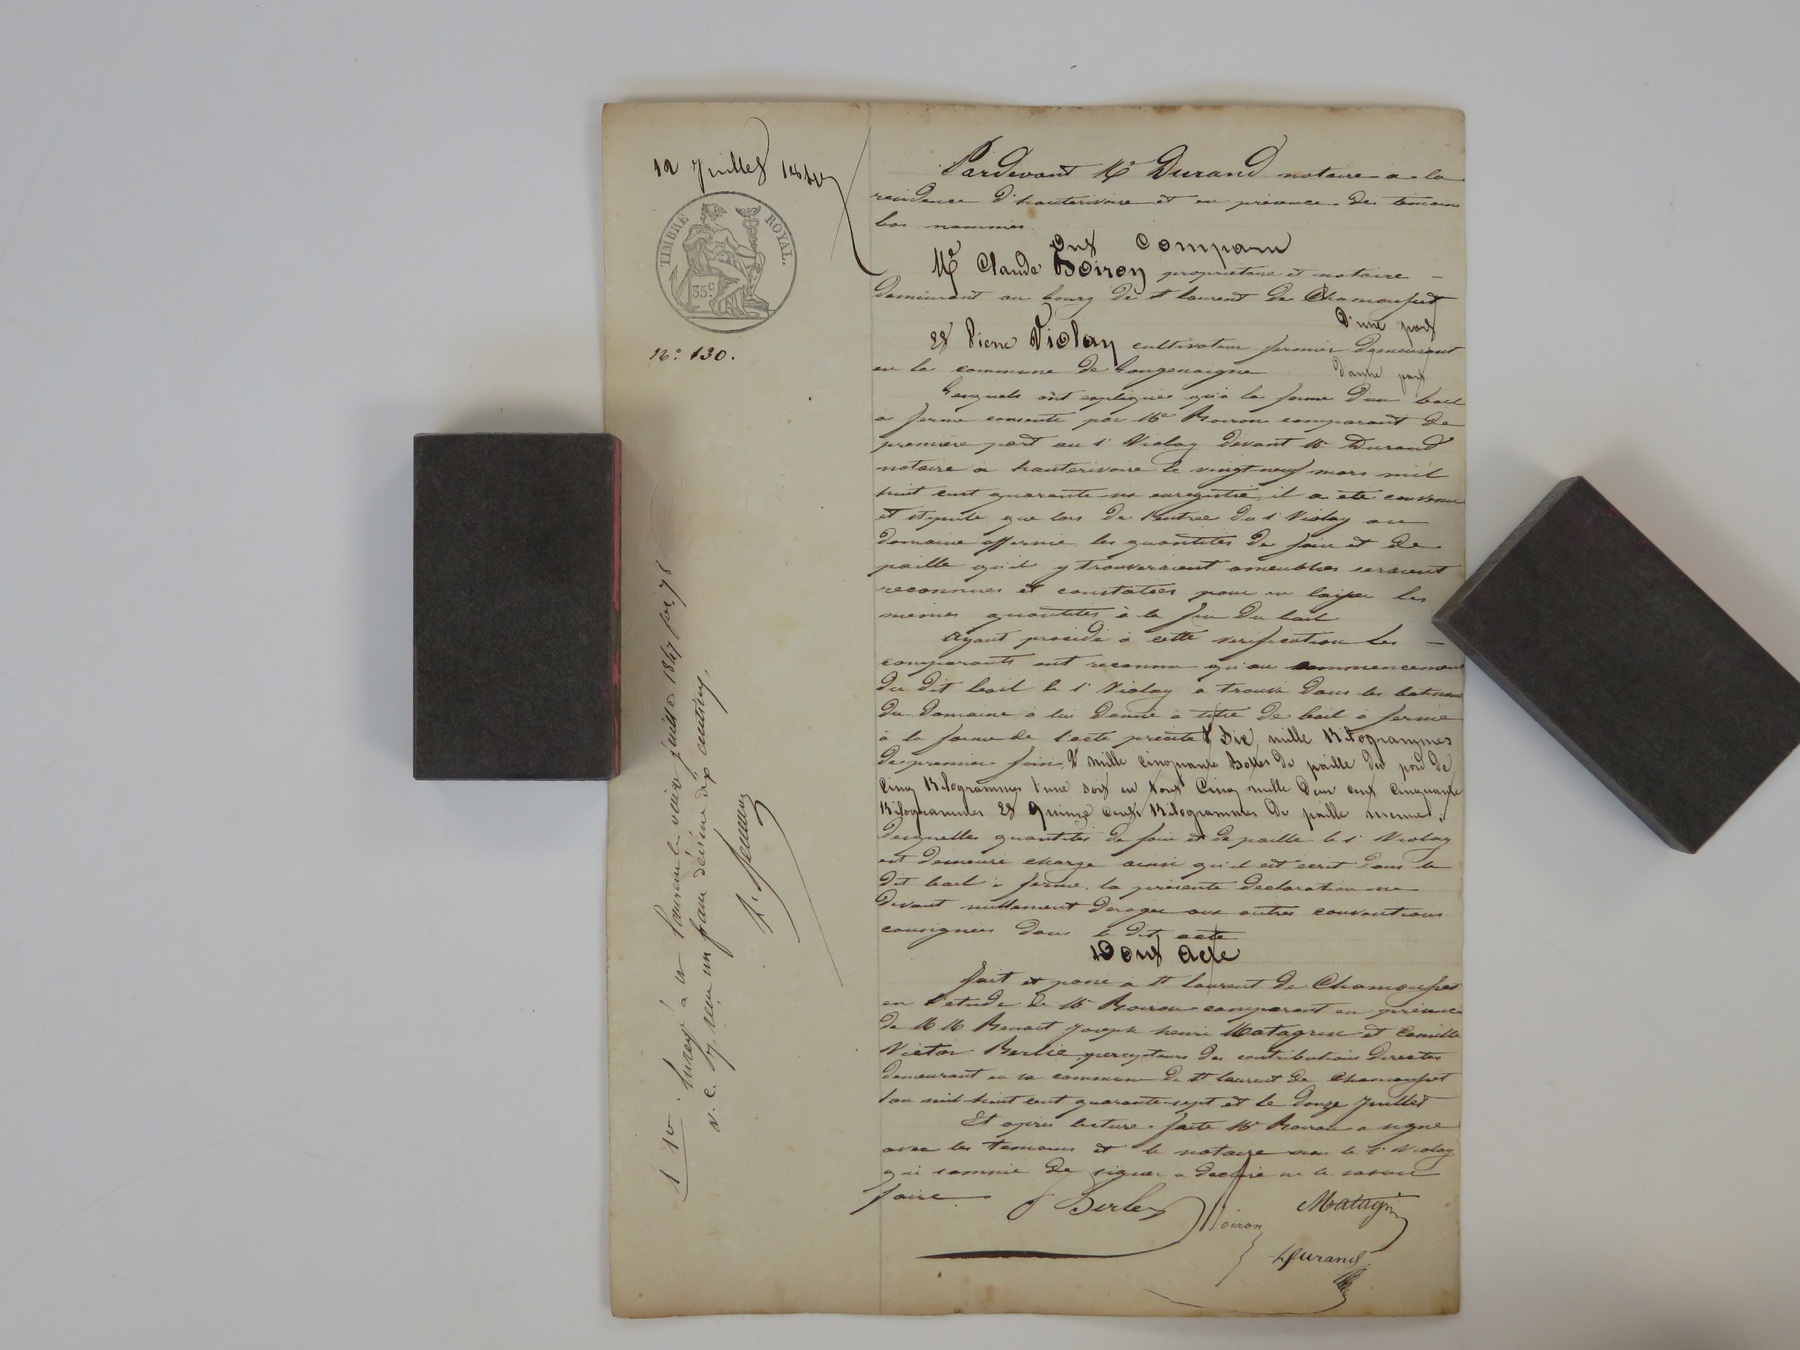 12 Juillet 1847
TIMBRE ROYAL.
35 c.
N.° 130.
Pardevant Me Durand notaire a la
residence d'hauterivoire et en présence des temoins
bas nommés
Ont Comparu
Me Claude Boiron propriétaire et notaire
demeurant au bourg de st laurent de Chamousset
D'une part
Et Pierre Violay cultivateur fermier demeurant
en la commune de Longessaigne
D'autre part
Lesquels ont expliqué qu'à la forme d'un bail
à ferme consenti par Me Boiron comparant de
première part au sr Violay devant Me Durand
notaire à hauterivoire le vingt neuf mars mil
huit cent quarante six enregistré, il a été convenu
et stipulé que lors de l'entrée du sr Violay au
domaine affermé les quantités de foin et de
paille qu'il y trouveraient ameublies seraient
reconnues et constatées pour en laisser les
memes quantités à la fin du bail
Ayant procédé à cette verification les
comparants ont reconnu qu'au commencement
du dit bail le sr Violay a trouvé dans les batiments
du domaine à lui donné à titre de bail à ferme
à la forme de l'acte précité Dix mille Kilogrammes
de premier foin, mille cinquante Bottes de paille du poid de
Cinq Kilogrammes l'une soit en tout Cinq mille deux cent cinquante
Kilogrammes Et Quinze cents Kilogrammes de paille menue.
Desquelles quantités de foin et de paille le sr Violay
est demeuré chargé ainsi qu'il est écrit dans le
dit bail à ferme, la présente déclaration ne
devant nullement deroger aux autres conventions
consignées dans le dit acte
Dont Acte
fait et passé a st laurent de Chamousset
en l'etude de Me Boiron comparant en présence
de M M Benoit Joseph henri Matagrin et Camille
Victor Berlié percepteurs des contributions directes
demeurant en la commune de st laurent de Chamousset
l'an mil huit cent quarante sept et le douze Juillet
Et après lecture faite Me Boiron a signé
avec les temoins et le notaire non le sr Violay
qui sommé de signer a déclaré ne le savoir
faire
Berlié
Boiron
Matagrin
Durand
Enregé à St Laurent le juillet 1847 fol. 78
v. c. 7, reçu un franc décime dix centimes.